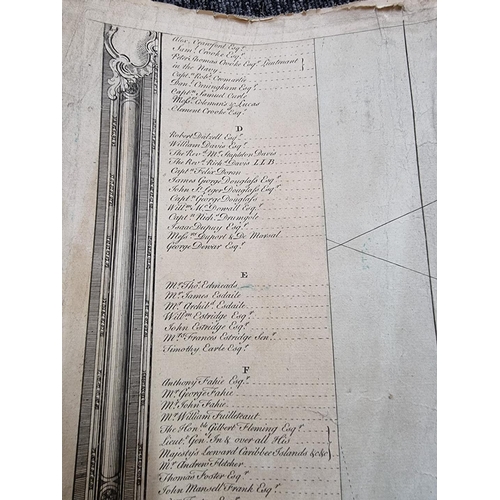 Alex. Crawford Esqr.
Saml. Crooke Esqr.
Peter Thomas Crooke Esqr. Lieutenant
in the Navy
Captn. Robt. Cromartis
Danl. Cunningham Esqr.
Captn. Samuel Curle
Messrs. Coleman's & Lucas
Clement Crooke Esqr.
D
Robert Dalzell Esqr.
William Davis Esqr.
The Revd. Mr. Stapleton Davis
The Revd. Richd. Davis LLB
Captn. Felix Doran
James George Douglass Esqr.
John St. Leger Douglass Esqr.
Captn. George Douglass
Willm. Mc. Dowall Esqr.
Captn. Nichs. Dromgole
Isaac Dupuy Esqr.
Messrs. Duport & De Marsal
George Dewar Esqr.
E
Mr. Thos. Edmeads
Mr. James Esdaile
Mr. Archibd. Esdaile
Willm. Estridge Esqr.
John Estridge Esqr.
Mrs. Frances Estridge Senr.
Timothy Earle Esqr.
F
Anthony Fahie Esqr.
Mr. George Fahie
Mr. John Fahie
Mr. William Fuilliteaut
The Honble. Gilbert Fleming Esqr.
Lieut. Genl. In & over all His
Majesty's Leeward Caribbee Islands &c &c
Mr. Andrew Fletcher
Thomas Foster Esqr.
John Mansell Frank Esqr.